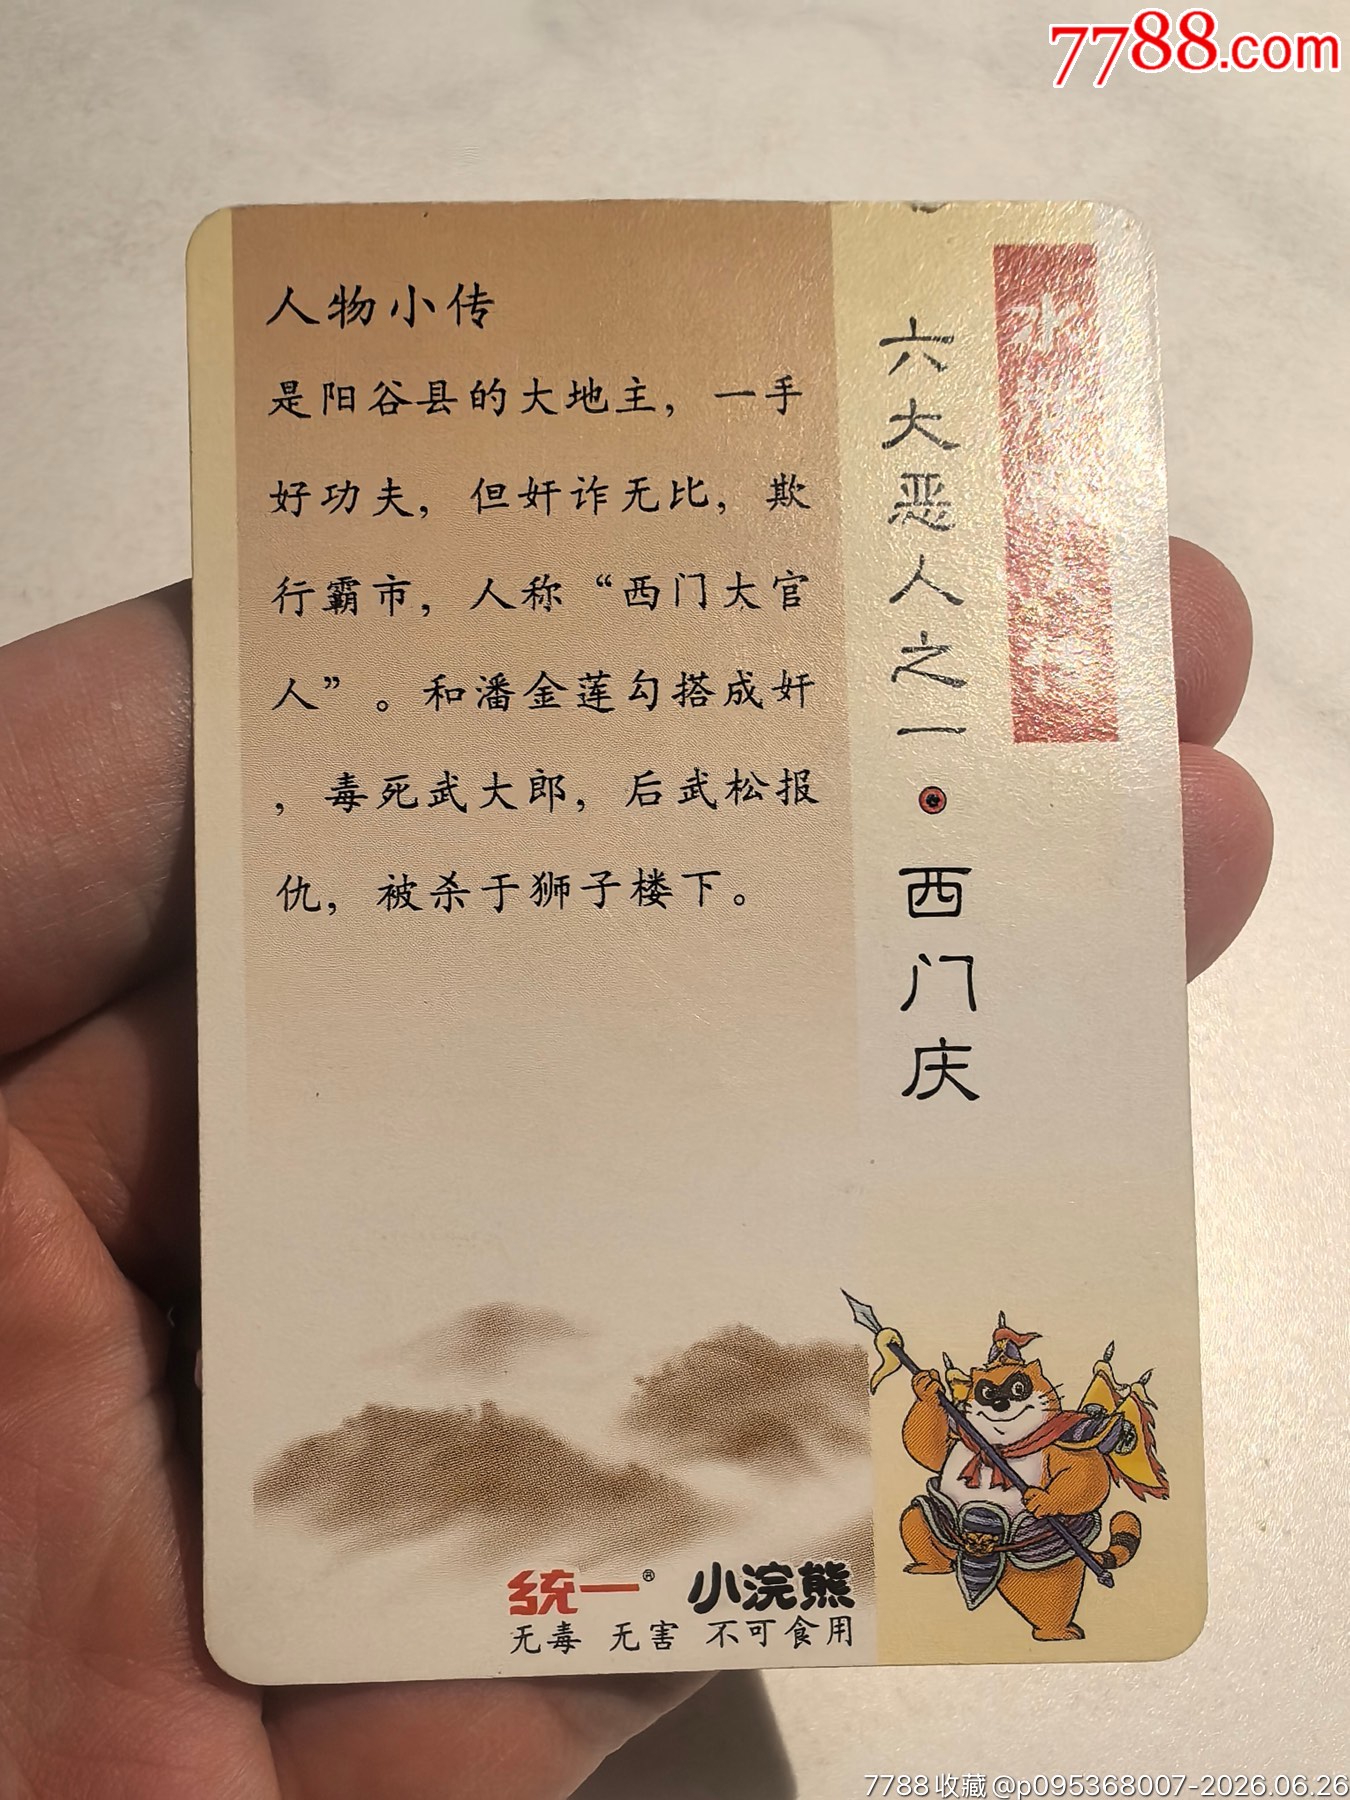 7788.com
人物小传
是阳谷县的大地主，一手
好功夫，但奸诈无比，欺
行霸市，人称“西门大官
人”。和潘金莲勾搭成奸
，毒死武大郎，后武松报
仇，被杀于狮子楼下。
六大恶人之一·西门庆
统一® 小浣熊
无毒 无害 不可食用
7788收藏@p095368007-2026.06.26